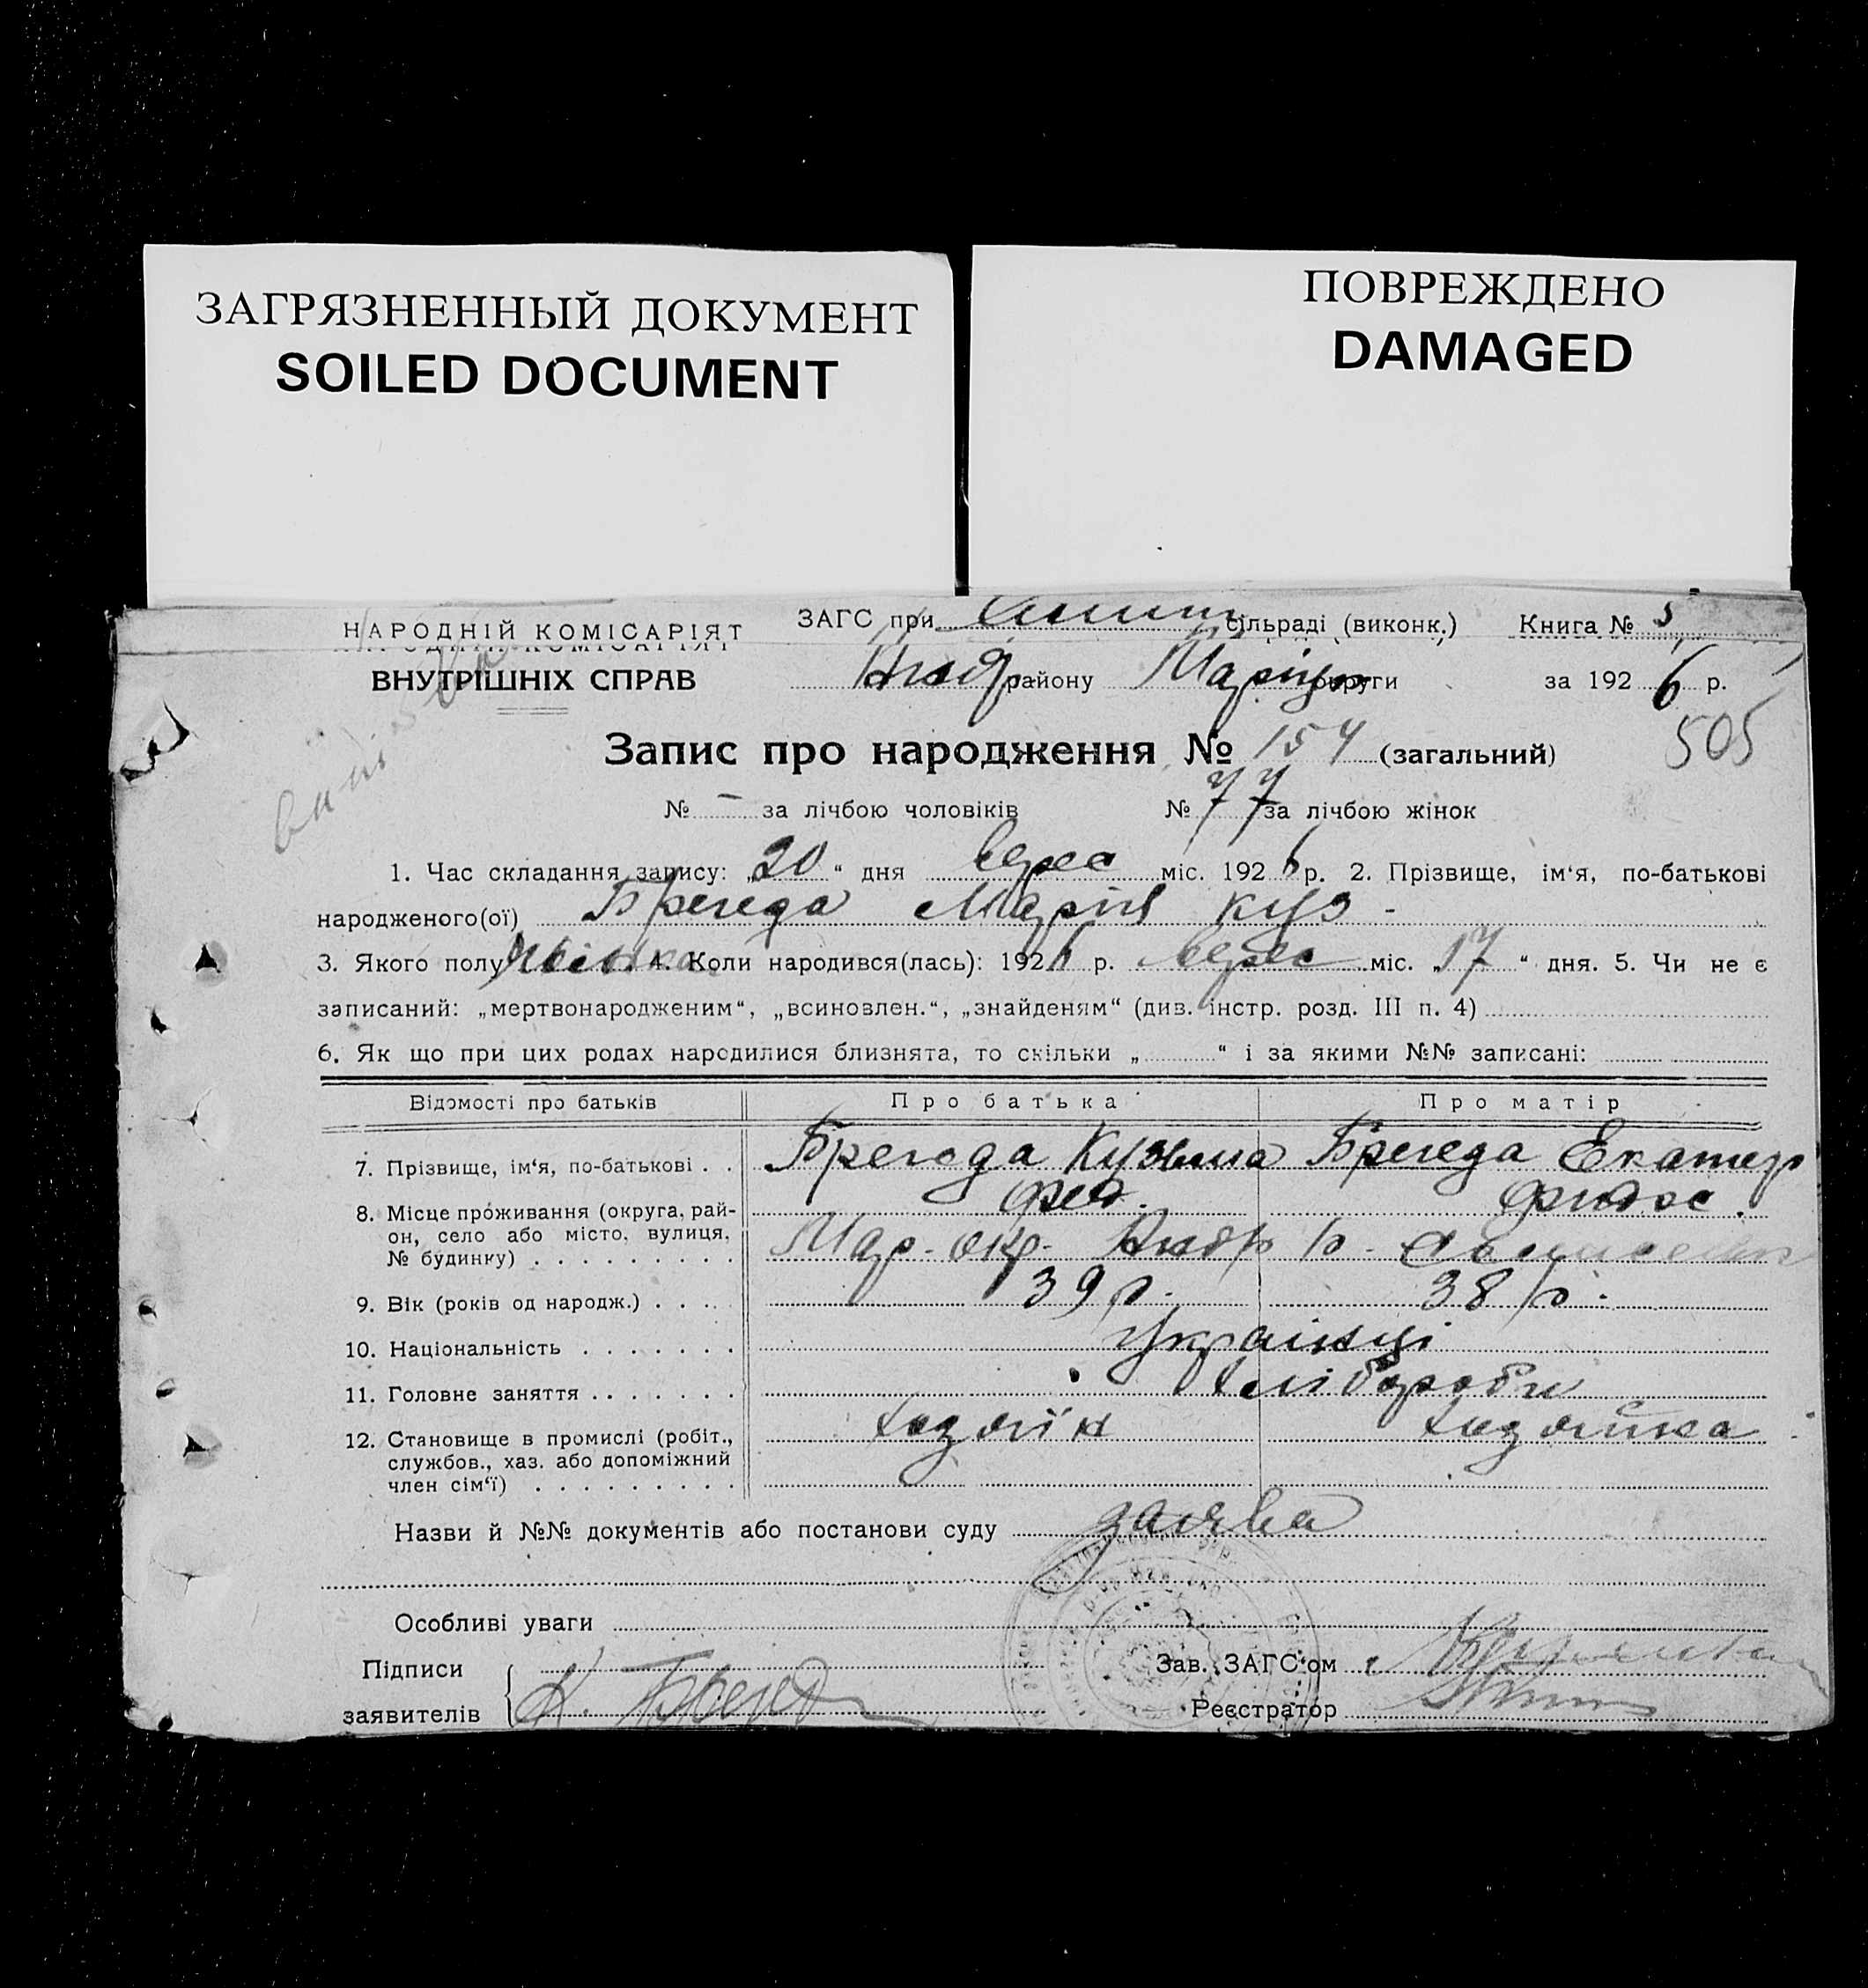 ЗАГРЯЗНЕННЫЙ ДОКУМЕНТ
SOILED DOCUMENT
ПОВРЕЖДЕНО
DAMAGED
НАРОДНІЙ КОМІСАРІЯТ
ВНУТРІШНІХ СПРАВ
ЗАГС при сільраді (виконк.) Книга № 5
Андр району Маріуп округи за 1926 р.
505
Запис про народження № 154 (загальний)
№ – за лічбою чоловіків № 77 за лічбою жінок
1. Час складання запису: „20“ дня верес міс. 1926 р. 2. Прізвище, ім‘я, по-батькові
народженого(ої) Брегеда Марія Куз -
3. Якого полу жінка. 4. Коли народився(лась): 1926 р. верес міс. „17“ дня. 5. Чи не є
записаний: „мертвонародженим“, „всиновлен.“, „знайденям“ (див. інстр. розд. III п. 4)
6. Як що при цих родах народилися близнята, то скільки „ “ і за якими №№ записані:
Відомості про батьків Про батька Про матір
7. Прізвище, ім‘я, по-батькові . . Брегеда Кузьма Брегеда Екатер
Фед.
8. Місце проживання (округа, рай-
он, село або місто, вулиця,
№ будинку) . . . . . . . . . Мар. окр. Андр р.
9. Вік (років од народж.) . . . . 39 р. 38 р.
10. Національність . . . . . . . Українці
11. Головне заняття . . . . . . . Хлібороби
12. Становище в промислі (робіт., хазяїн хазяйка
службов., хаз. або допоміжний
член сім‘ї) . . . . . . . . .
Назви й №№ документів або постанови суду заява
Особливі уваги
Підписи
заявителів К. Брегед
Зав. ЗАГС‘ом
Реєстратор